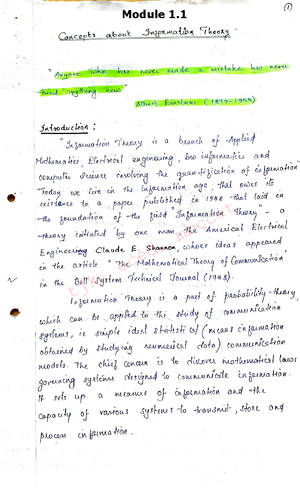 (1)
Module 1.1
Concepts about Information Theory
"Anyone who has never made a mistake has never
tried anything new"
Albert Einstein (1879-1955)
Introduction :
"Information Theory is a branch of Applied
Mathematics, Electrical engineering, bio informatics and
computer Science involving the quantification of information"
Today we live in the information age, that owes its
existence to a paper published in 1948 that laid in
the foundation of the field Information Theory - a
theory initiated by one man the American Electrical
Engineering Claude E. Shannon, whose ideas appeared
in the article "The Mathematical Theory of Communication"
in the Bell System Technical Journal (1948).
Information Theory is a part of probability theory
which can be applied to the study of communication
systems, ie simple ideal statistical (means information
obtained by studying neumerical data) communication
models. The chief concern is to discover mathematical laws
governing systems designed to communicate information.
It sets up a measure of information and the
capacity of various systems to transmit, store and
process information.